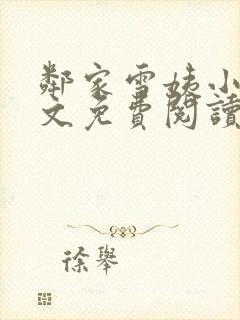 鄰家雪姨小
文免費閱讀
徐舉